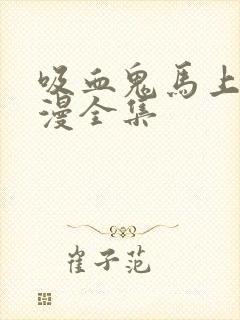 吸血鬼馬上
漫全集
崔子范